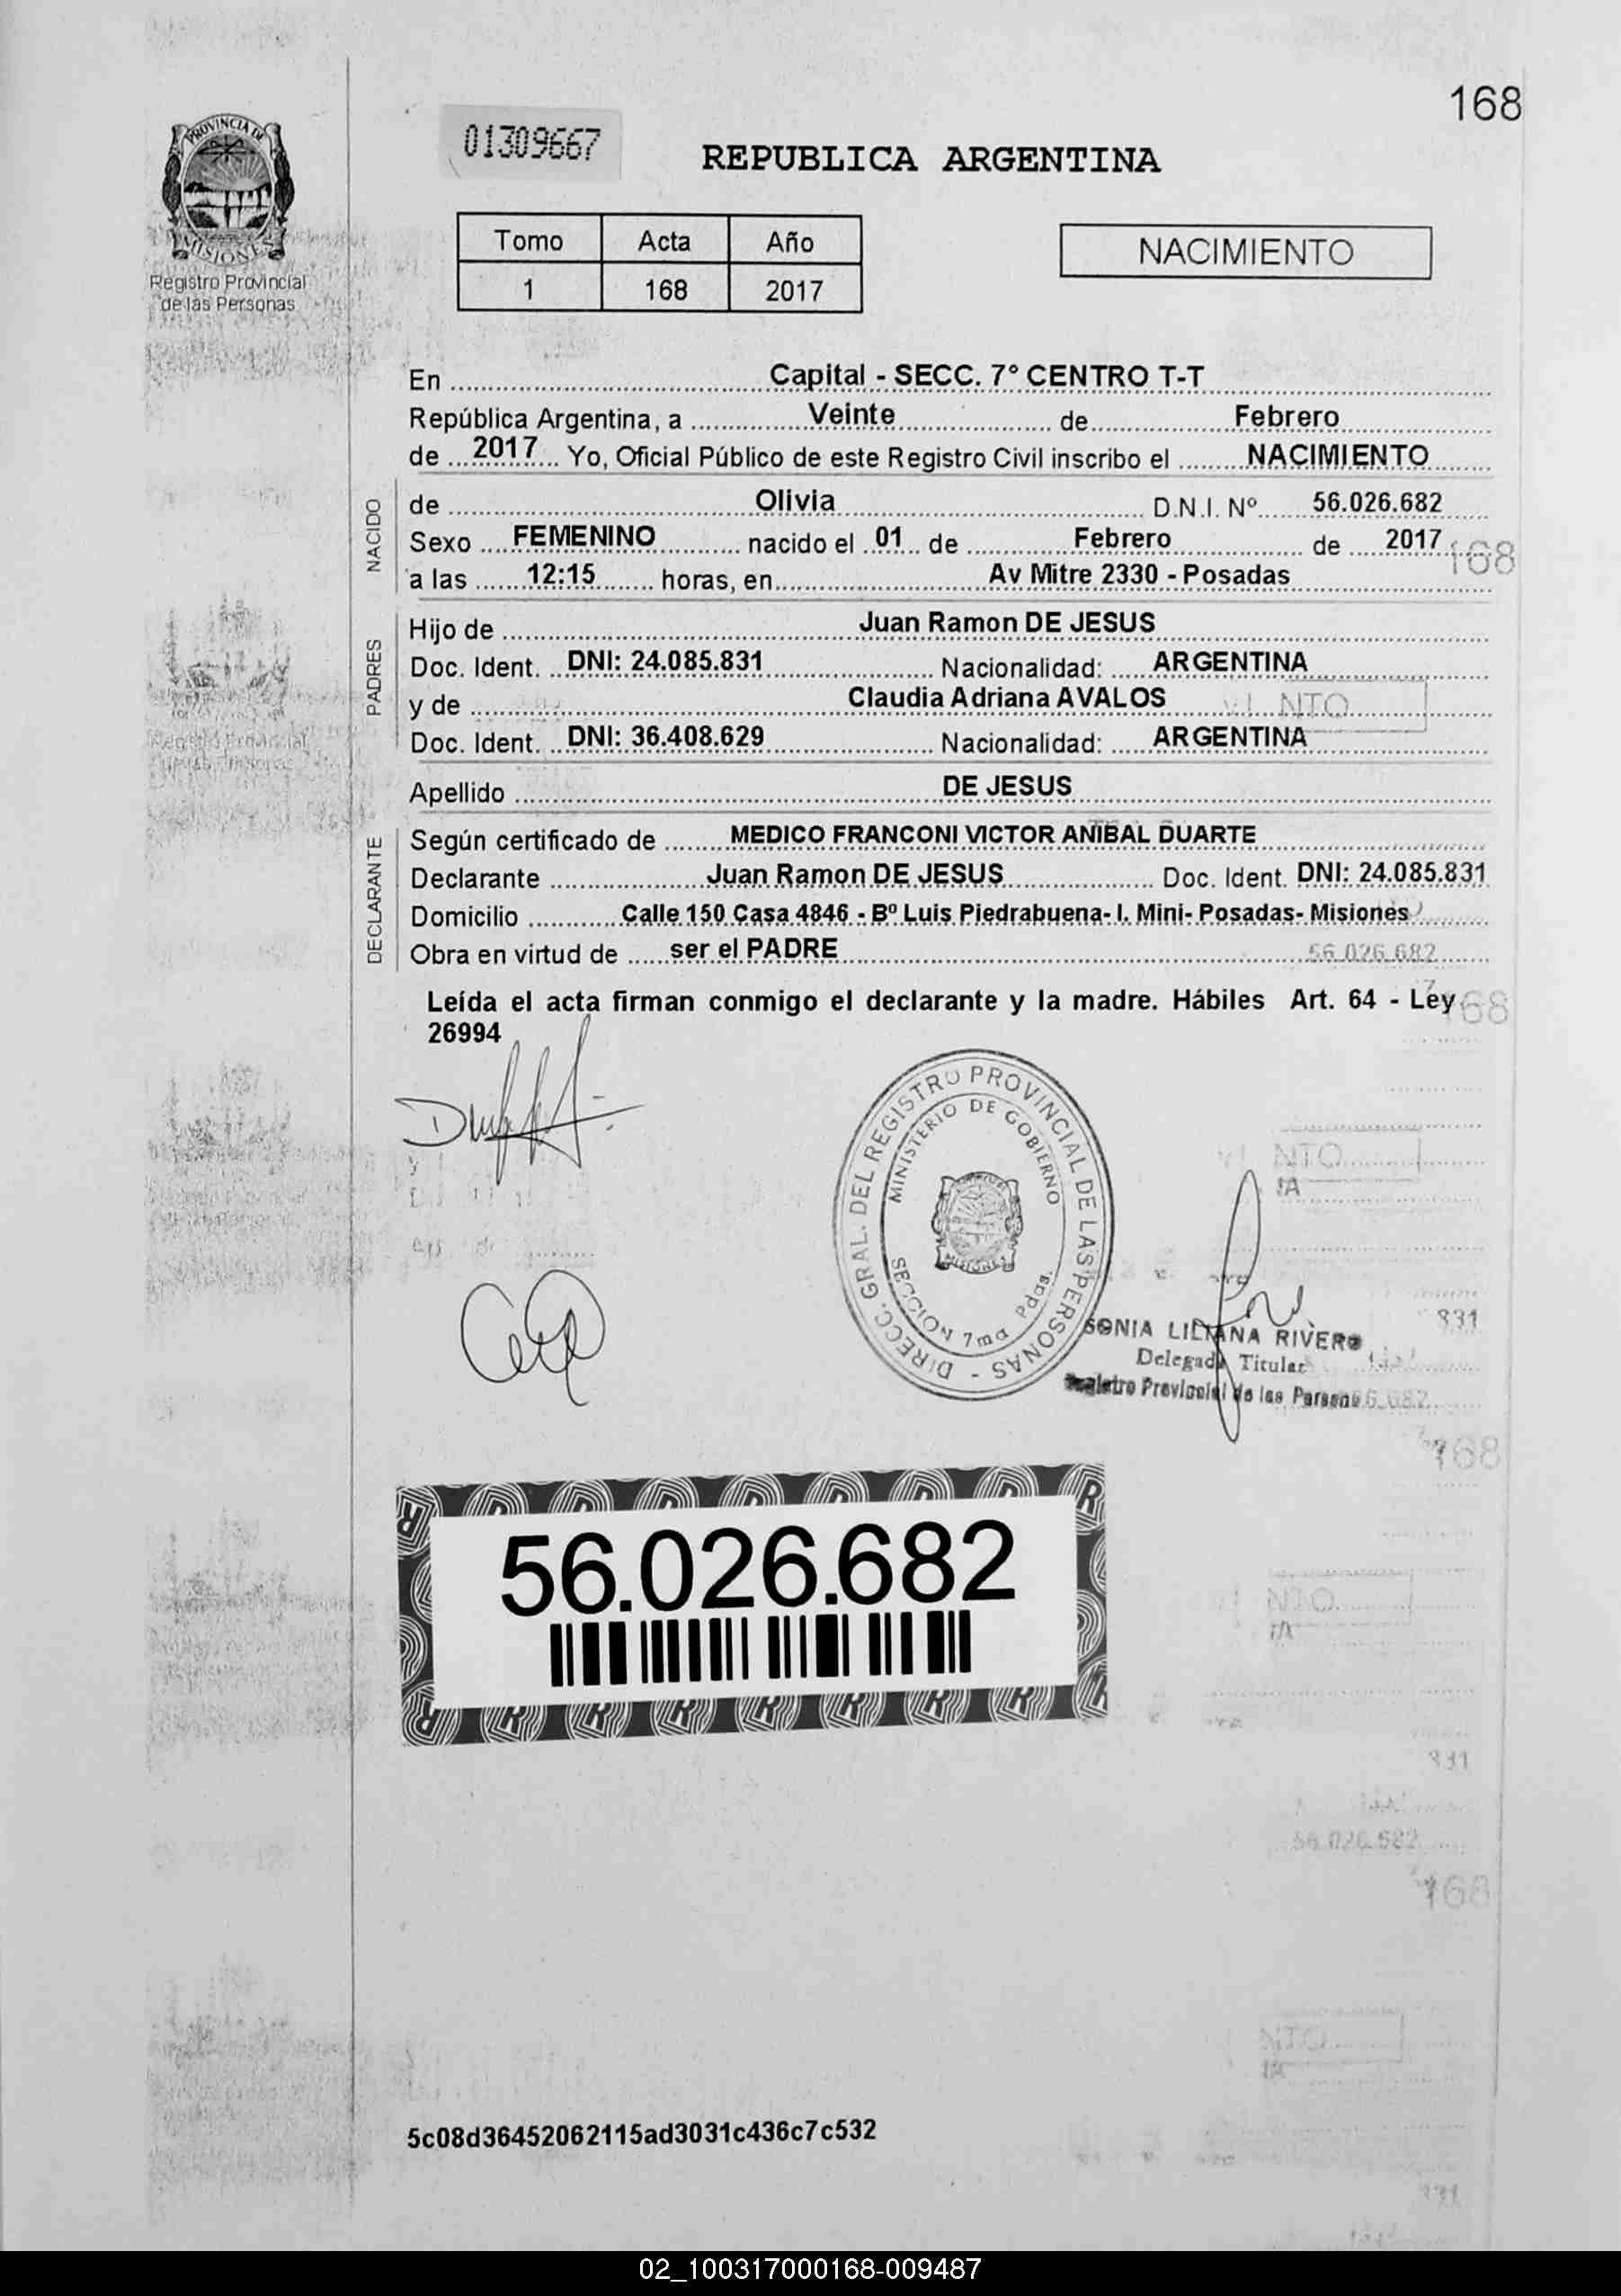 168
PROVINCIA DE
MISIONES
Registro Provincial
de las Personas
01309667
REPUBLICA ARGENTINA
Tomo Acta Año
1 168 2017
NACIMIENTO
En Capital - SECC. 7° CENTRO T-T
República Argentina, a Veinte de Febrero
de 2017 Yo, Oficial Público de este Registro Civil inscribo el NACIMIENTO
NACIDO
de Olivia D.N.I. Nº 56.026.682
Sexo FEMENINO nacido el 01 de Febrero de 2017
a las 12:15 horas, en Av Mitre 2330 - Posadas
168
PADRES
Hijo de Juan Ramon DE JESUS
Doc. Ident. DNI: 24.085.831 Nacionalidad: ARGENTINA
y de Claudia Adriana AVALOS
Doc. Ident. DNI: 36.408.629 Nacionalidad: ARGENTINA
Apellido DE JESUS
DECLARANTE
Según certificado de MEDICO FRANCONI VICTOR ANIBAL DUARTE
Declarante Juan Ramon DE JESUS Doc. Ident. DNI: 24.085.831
Domicilio Calle 150 Casa 4846 - Bº Luis Piedrabuena- I. Mini- Posadas- Misiones
Obra en virtud de ser el PADRE
56.026.682
Leída el acta firman conmigo el declarante y la madre. Hábiles Art. 64 - Ley
26994
DIRECC. GRAL. DEL REGISTRO PROVINCIAL DE LAS PERSONAS -
MINISTERIO DE GOBIERNO
MISIONES
SECCION 7ma Pdas.
SONIA LILIANA RIVERO
Delegada Titular
Registro Provincial de las Personas
831
168
56.026.682
831
56.026.682
168
5c08d36452062115ad3031c436c7c532
331
02_100317000168-009487